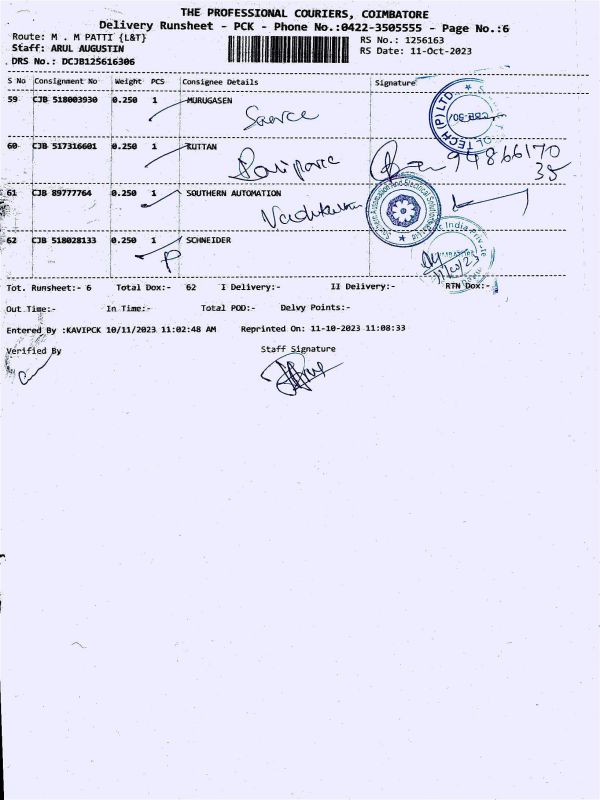 THE PROFESSIONAL COURIERS, COIMBATORE
Delivery Runsheet - PCK - Phone No.:0422-3505555 - Page No.:6
Route: M . M PATTI {L&T}
RS No.: 1256163
Staff: ARUL AUGUSTIN
RS Date: 11-Oct-2023
DRS No.: DCJB125616306
S No Consignment No Weight PCS Consignee Details Signature
59 CJB 518003930 0.250 1 MURUGASEN
60 CJB 517316601 0.250 1 KUTTAN
94866170
35
61 CJB 89777764 0.250 1 SOUTHERN AUTOMATION
62 CJB 518028133 0.250 1 SCHNEIDER
P
Tot. Runsheet:- 6 Total Dox:- 62 I Delivery:- II Delivery:- RTN Dox:-
Out Time:- In Time:- Total POD:- Delvy Points:-
Entered By :KAVIPCK 10/11/2023 11:02:48 AM Reprinted On: 11-10-2023 11:08:33
Verified By Staff Signature